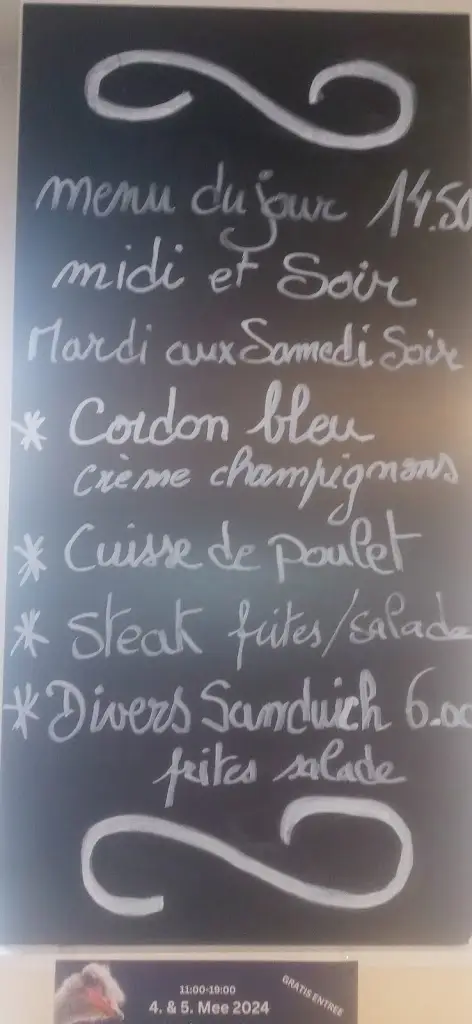 menu du jour 14.50
midi et Soir
Mardi aux Samedi Soir
* Cordon bleu
crème champignons
* Cuisse de poulet
* Steak frites/salade
* Divers Sandwich 6.00
frites salade
11:00-19:00
GRATIS ENTREE
4. & 5. Mee 2024